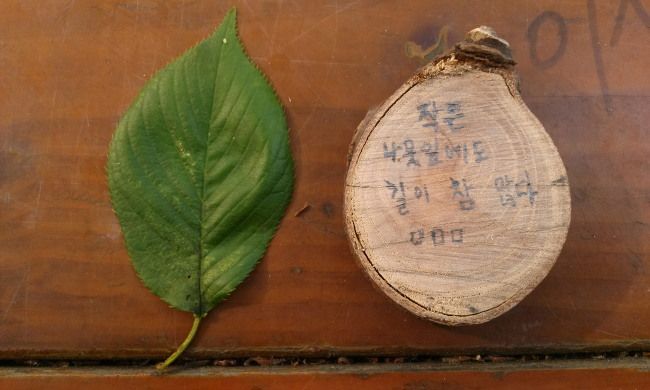 작은
나뭇잎에도
길이 참 많다
ㅁㅁㅁ